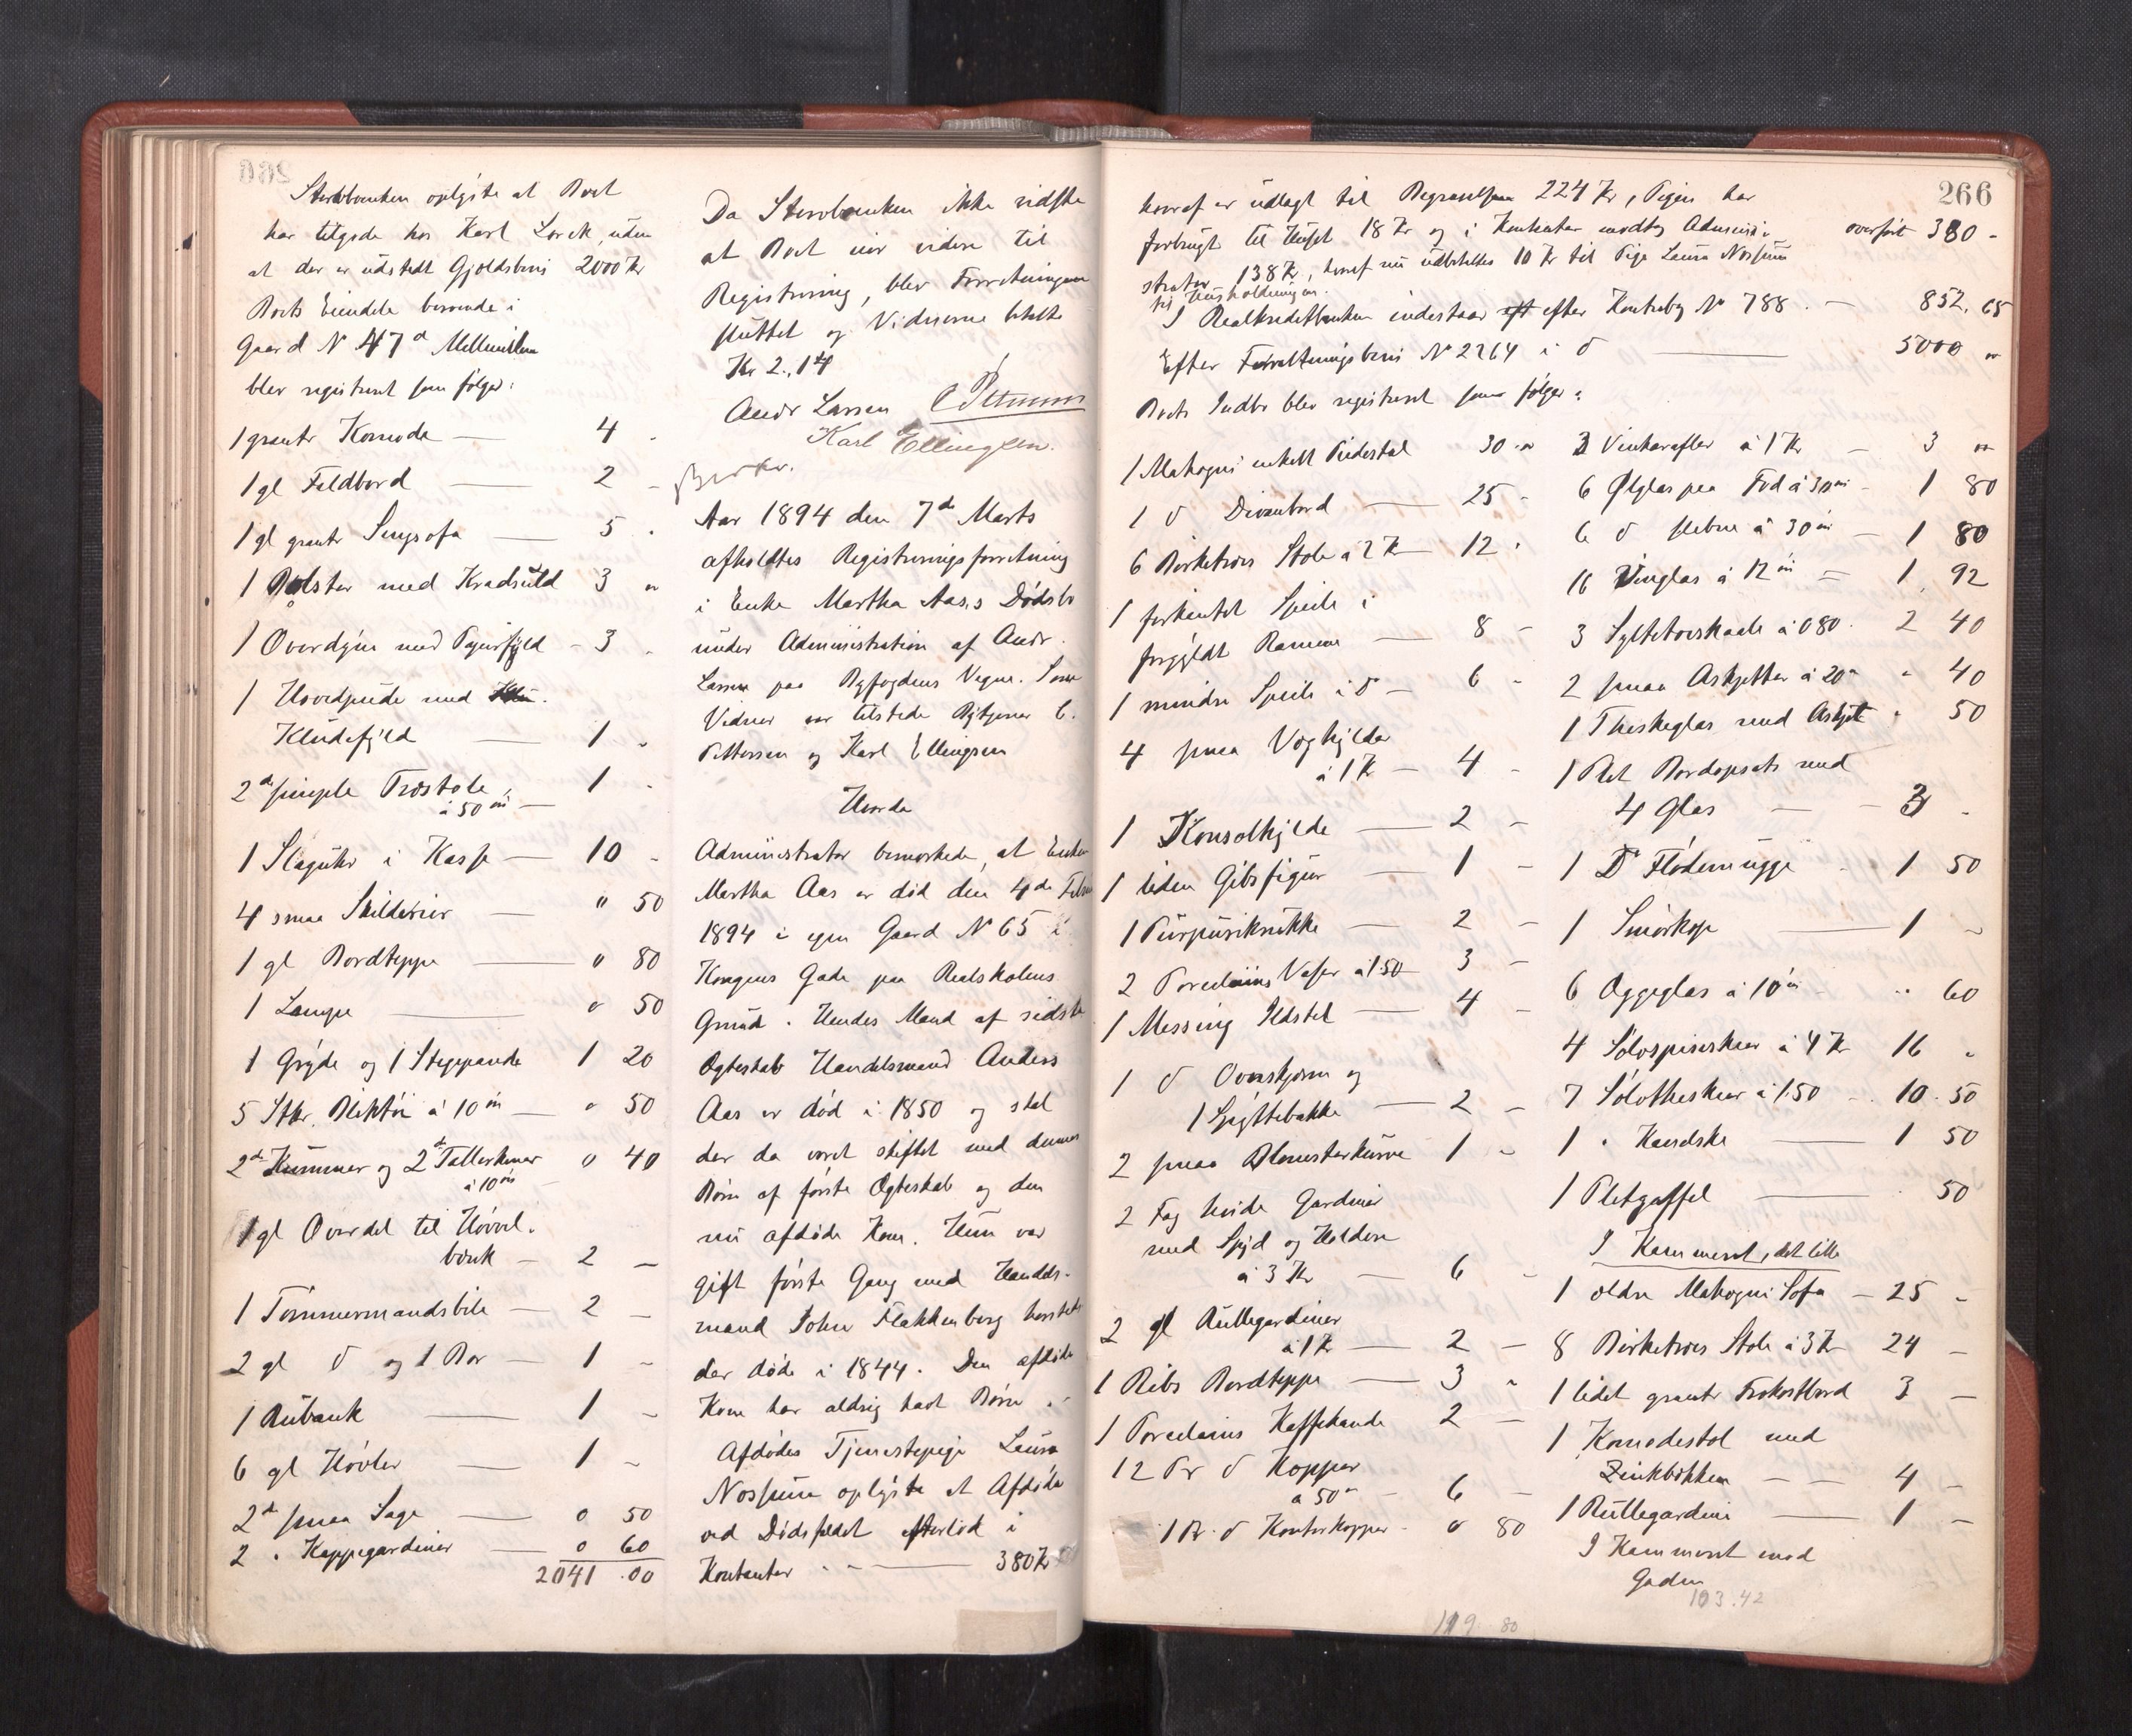 Stervbanken oplyste at Boet
har tilgode hos Karl Lorck, uden
at der er udstedt Gjeldsbevis 2000 Kr
Boets Eiendele beroende i
Gaard N 47 a Mellemilen
blev registreret som følger:
1 grantr Komode — 4 -
1 gl Foldbord — 2 -
1 gl grantr Sengsofa — 5 -
1 Bolster med Kradsuld 3 "
1 Overdyne med Fyer fyld - 3 -
1 Hovedpude med
Kludefyld — 1 -
2 de simple Træstole,
à 50 øre — 1 -
1 Slaguhr i Kasse — 10 -
4 smaa Skilderier — " 50
1 gl Bordteppe — " 80
1 Lampe — " 50
1 Gryde og 1 Stegepande 1 20
5 Stkr. Bliktøi à 10 øre — " 50
2 de Kummer og 2 de Tallerkener
à 10 øre 0 40
1 gl Overdel til Høvel-
bænk — 2 -
1 Tømmermandsbile — 2 -
2 gl do og 1 Bor — 1 -
1 Rubank — 1 -
6 gl Høvler — 1 -
2 de smaa Sage — 0 50
2 " Kappegardiner — 0 60
2041 . 00
Da Stervbanken ikke vidste
at Boet eier videre til
Registrering, blev Forretningen
sluttet og Vidnerne betalte
Kr 2.,14
Andr Larsen C Pettersen
Karl Ellingsen.
Aar 1894 den 7de Marts
afholdtes Registreringsforretning
i Enke Martha Aas,s Dødsbo
under Administration af Andr.
Larsen paa Byfogdens Vegne. Som
Vidner var tilstede Bytjener C.
Pettersen og Karl Ellingsen
Hvorda
Administrator bemærkede, at Enken
Martha Aas er død den 4de Febru
1894 i egen Gaard N 65 i
Kongens Gade paa Realskolens
Grund. Hendes Mand af sidste
Ægteskab Handelsmand Anders
Aas er død i 1850 og skal
der da været skiftet med dennes
Børn af første Ægteskab og den
nu afdøde Kone. Hun var
gift første Gang med Handels-
mand Johan Flakkenberg hersteds
der døde i 1844. Den afdøde
Kone har aldrig havt Børn.
Afdødes Tjenestepige Laura
Nossum oplyste at Afdøde
ved Dødsfaldet efterlod i
Kontanter — 380 Kr
266
hvoraf er udlagt til Begravelsen 224 Kr, Pigen har
forbrugt til Huset 18 Kr og i Kontanter modtog Admini-
strator 138 Kr, hvoraf nu udbetaltes 10 Kr til Pige Laura Nossum
til Husholdningen.
overført 380 -
I Realkreditbanken indestaar efter Kontrabog N 788 . — 852,65
Efter Forvaltningsbevis N 2264 i do — 5000 "
Boets Indbo blev registreret som følger:
1 Mahogni enkelt Piedestal 30 "
1 do Divanbord — 25 -
6 Birketræs Stole à 2 Kr — 12 "
1 firkantet Speile i
forgyldt Ramme — 8 -
1 mindre Speile i do — 6 -
4 smaa Væghylder
à 1 Kr — 4 -
1 Konsolhylde — 2 -
1 liden Gibsfigur — 1 -
1 Purpurikrukke — 2 -
2 Porcelæins Vaser à 1 50 3 -
1 Messing Ildstel — 4 -
1 do Ovnskjærm og
1 Spyttebakke — 2 -
2 smaa Blomsterkurve 1 -
2 Fag hvide Gardiner
med Spyd og Holdere
à 3 Kr — 6 -
2 gl Rullegardiner
à 1 Kr — 2 -
1 Ribs Bordteppe — 3 "
1 Porcelæins Kaffekande 2 -
12 Pr do Kopper
à 50 ø — 6 -
1 Pr. do Kontorkopper - 0 80
119 80
3 Vinkarafler à 1 Kr — 3 "
6 Ølglas paa Fod à 30 øre — 1 80
6 do slebne à 30 øre — 1 80
16 Vinglas à 12 øre — 1 92
3 Syltetøiskaale à 0 80 . 2 40
2 smaa Askjetter à 20 ø " 40
1 Theskeglas med Askjet " 50
1 Plet Bordopsats med
4 Glas — 3 -
1 Do Flødemugge 1 50
1 Smørkop — 1 -
6 Æggeglas à 10 øre .. 60
4 Sølvspiseskeer à 4 Kr 16 "
7 Sølvtheskeer à 1.50 .. 10 . 50
1 " Kandske — 1 50
1 Pletgaffel — 50
I Kammeret, det lille
1 ældre Mahogni Sofa — 25 -
8 Birketræs Stole à 3 Kr 24 -
1 lidet grantr Frokostbord 3 -
1 Komodestol med
Zinkbøkken — 4 -
1 Rullegardin — 1 -
I Kammeret mod
Gaden
103.42